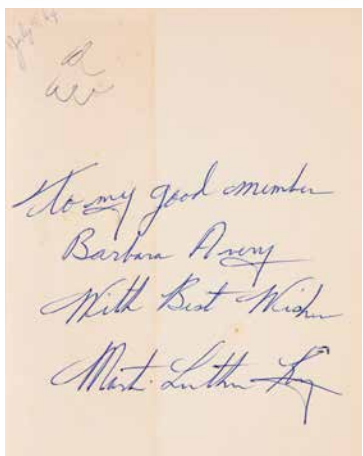 To my good member
Barbara Avery
With Best Wishes
Martin Luther King